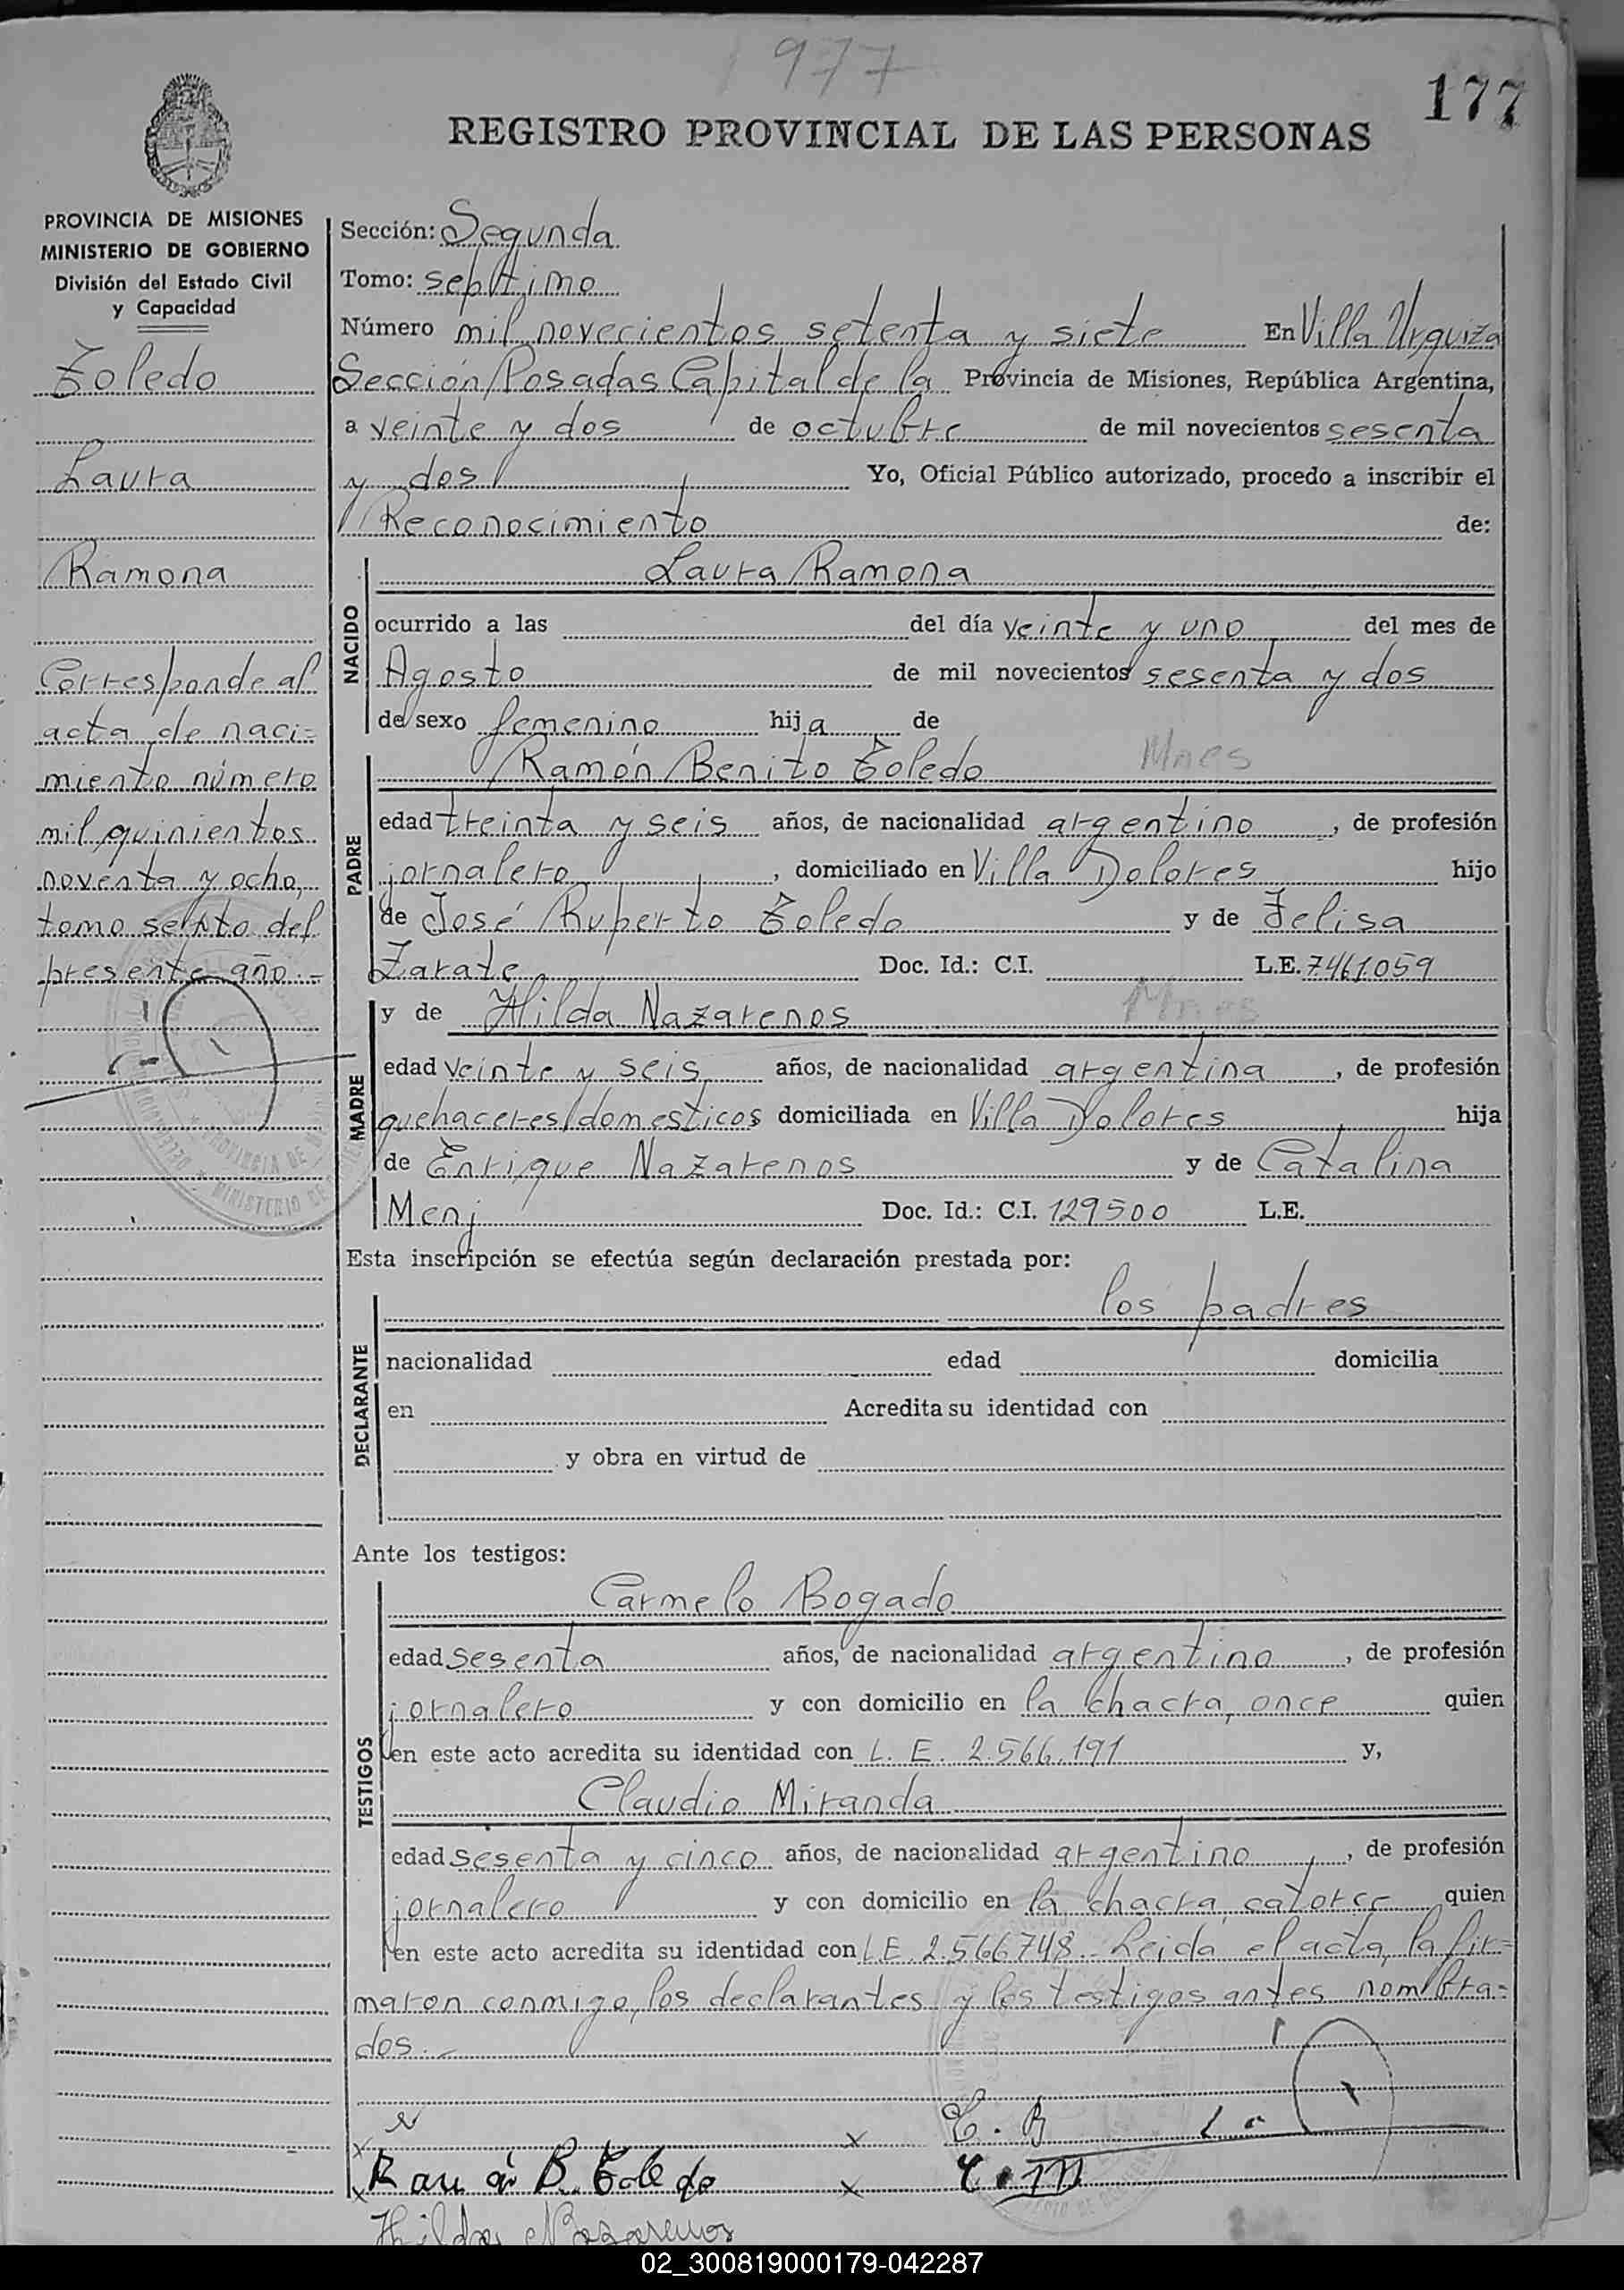 977
177
REGISTRO PROVINCIAL DE LAS PERSONAS
PROVINCIA DE MISIONES
MINISTERIO DE GOBIERNO
División del Estado Civil
y Capacidad
Toledo
Laura
Ramona
Corresponde al
acta de naci-
miento número
mil quinientos
noventa y ocho,
tomo sexto del
presente año.-
Sección: Segunda
Tomo: sépttimo
Número mil novecientos setenta y siete En Villa Urquiza
Sección Posadas Capital de la Provincia de Misiones, República Argentina,
a veinte y dos de octubre de mil novecientos sesenta
y dos Yo, Oficial Público autorizado, procedo a inscribir el
Reconocimiento de:
NACIDO
Laura Ramona
ocurrido a las del día veinte y uno del mes de
Agosto de mil novecientos sesenta y dos
de sexo femenino hija de
PADRE
Ramón Benito Toledo Mnes
edad treinta y seis años, de nacionalidad argentino, de profesión
jornalero, domiciliado en Villa Dolores hijo
de José Ruperto Toledo y de Felisa
Zarate Doc. Id.: C.I. L.E. 7461.059
MADRE
y de Hilda Nazarenos Mnes
edad veinte y seis años, de nacionalidad argentina, de profesión
quehaceres domesticos domiciliada en Villa Dolores hija
de Enrique Nazarenos y de Catalina
Menj Doc. Id.: C.I. 129500 L.E.
Esta inscripción se efectúa según declaración prestada por:
DECLARANTE
los padres
nacionalidad edad domicilia
en Acredita su identidad con
y obra en virtud de
Ante los testigos:
TESTIGOS
Carmelo Bogado
edad sesenta años, de nacionalidad argentino, de profesión
jornalero y con domicilio en la chacra once quien
en este acto acredita su identidad con L. E. 2.566.191 y,
Claudio Miranda
edad sesenta y cinco años, de nacionalidad argentino, de profesión
jornalero y con domicilio en la chacra catorce quien
en este acto acredita su identidad con L.E. 2.566748.- Leida el acta, la fir-
maron conmigo, los declarantes y los testigos antes nombra-
dos.-
C. B
Ramón B. Toledo C. M
Hilda Nazarenos
02_300819000179-042287